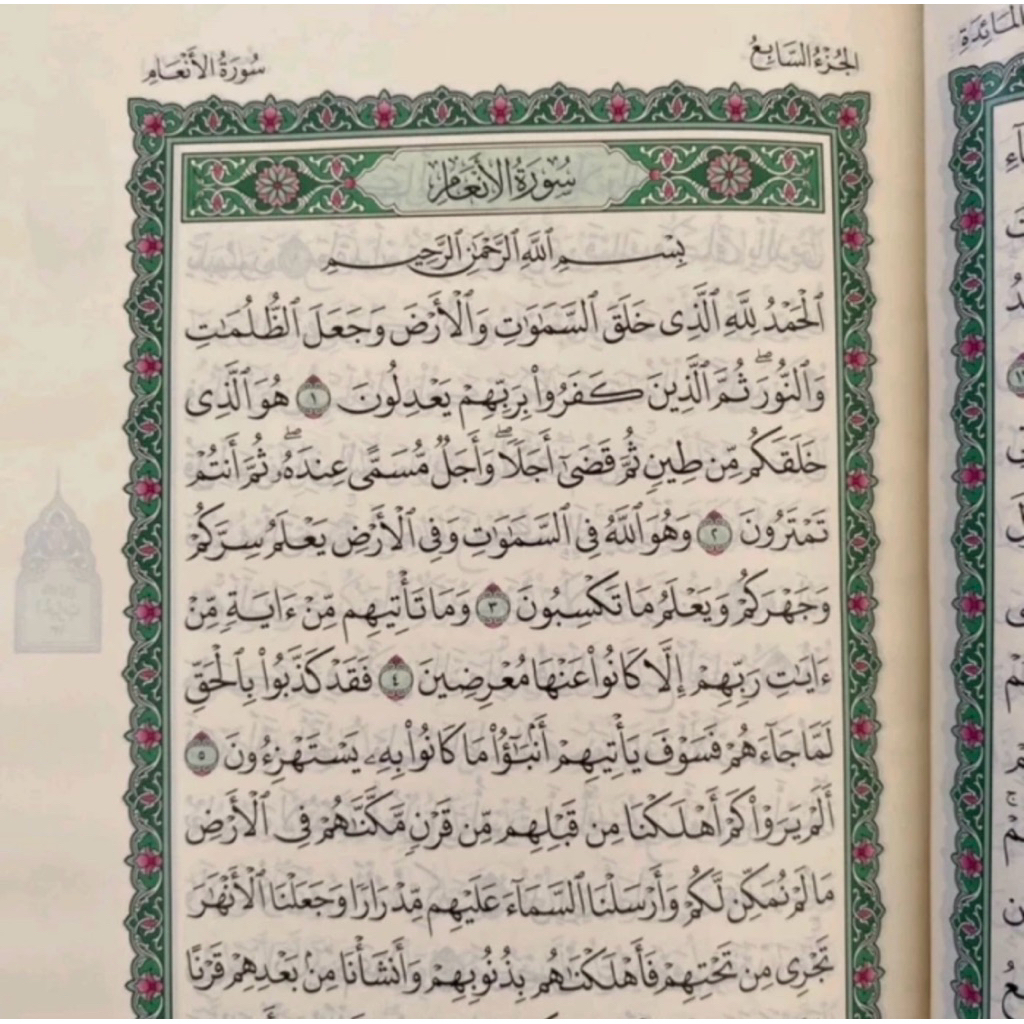 الجزء السابع
سورة الأنعام
سُورَةُ الأَنْعَامِ
بِسْمِ ٱللَّهِ ٱلرَّحْمَٰنِ ٱلرَّحِيمِ
ٱلْحَمْدُ لِلَّهِ ٱلَّذِى خَلَقَ ٱلسَّمَٰوَٰتِ وَٱلْأَرْضَ وَجَعَلَ ٱلظُّلُمَٰتِ
وَٱلنُّورَۖ ثُمَّ ٱلَّذِينَ كَفَرُوا۟ بِرَبِّهِمْ يَعْدِلُونَ ١ هُوَ ٱلَّذِى
خَلَقَكُم مِّن طِينٍ ثُمَّ قَضَىٰٓ أَجَلًاۖ وَأَجَلٌ مُّسَمًّى عِندَهُۥۖ ثُمَّ أَنتُمْ
تَمْتَرُونَ ٢ وَهُوَ ٱللَّهُ فِى ٱلسَّمَٰوَٰتِ وَفِى ٱلْأَرْضِ يَعْلَمُ سِرَّكُمْ
وَجَهْرَكُمْ وَيَعْلَمُ مَا تَكْسِبُونَ ٣ وَمَا تَأْتِيهِم مِّنْ ءَايَةٍ مِّنْ
ءَايَٰتِ رَبِّهِمْ إِلَّا كَانُوا۟ عَنْهَا مُعْرِضِينَ ٤ فَقَدْ كَذَّبُوا۟ بِٱلْحَقِّ
لَمَّا جَآءَهُمْ فَسَوْفَ يَأْتِيهِمْ أَنۢبَٰٓؤُا۟ مَا كَانُوا۟ بِهِۦ يَسْتَهْزِءُونَ ٥
أَلَمْ يَرَوْا۟ كَمْ أَهْلَكْنَا مِن قَبْلِهِم مِّن قَرْنٍ مَّكَّنَّٰهُمْ فِى ٱلْأَرْضِ
مَا لَمْ نُمَكِّن لَّكُمْ وَأَرْسَلْنَا ٱلسَّمَآءَ عَلَيْهِم مِّدْرَارًا وَجَعَلْنَا ٱلْأَنْهَٰرَ
تَجْرِى مِن تَحْتِهِمْ فَأَهْلَكْنَٰهُم بِذُنُوبِهِمْ وَأَنشَأْنَا مِنۢ بَعْدِهِمْ قَرْنًا
المائدة